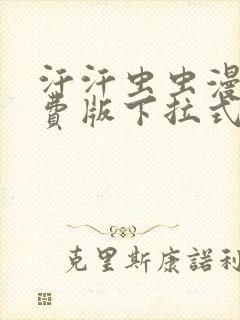 汗汗虫虫漫
费版下拉式
克里斯康諾利